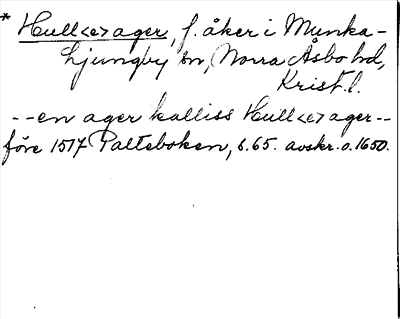 * Hull<e>ager, f. åker i Munka-
Ljungby sn, Norra Åsbo hd,
Krist. l.
--en ager kalliss Hull<e>ager--
före 1517 Palteboken, s. 65. avskr. o. 1650.